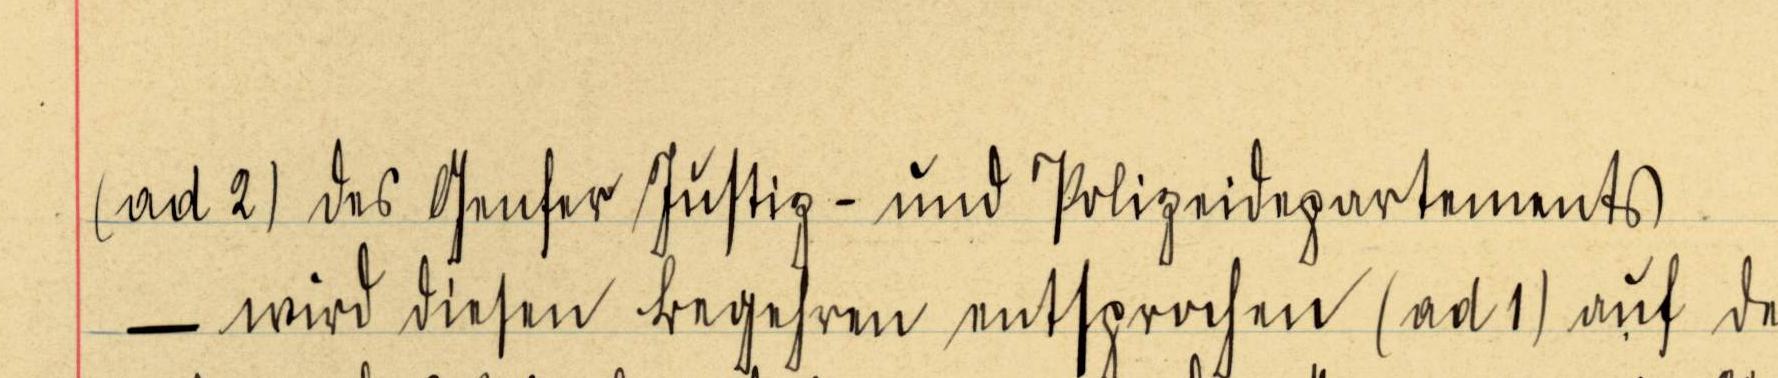 (ad 2) des Genfer Justiz- und Polizeidepartements
— wird diesen Begehren entsprochen (ad 1) auf